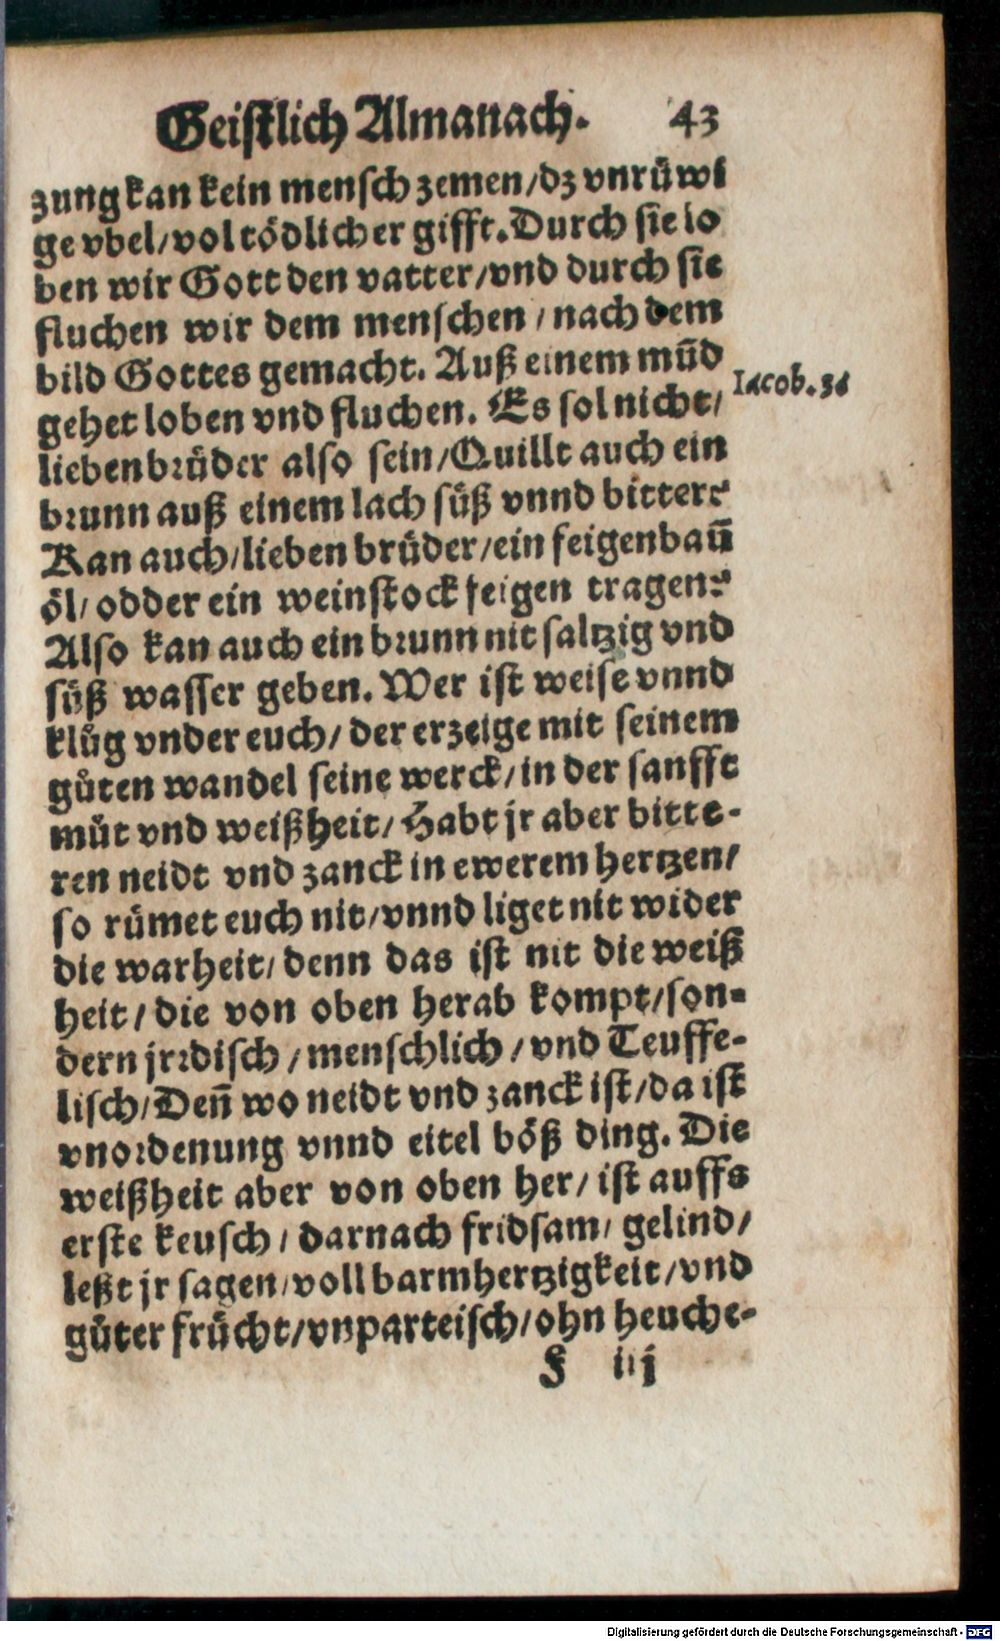 Geistlich Almanach. 43
zung kan kein mensch zemen/dz vnrüwi
ge vbel/vol tödlicher gifft. Durch sie lo
ben wir Gott den vatter/vnd durch sie
fluchen wir dem menschen/nach dem
bild Gottes gemacht. Auß einem mūd
gehet loben vnd fluchen. Es sol nicht/
Iacob. 3.
lieben brüder also sein/Quillt auch ein
brunn auß einem lach süß vnnd bitter?
Kan auch/lieben brüder/ein feigenbaū
öl/odder ein weinstock feigen tragen?
Also kan auch ein brunn nit saltzig vnd
süß wasser geben. Wer ist weise vnnd
klůg vnder euch/der erzeige mit seinem
gůten wandel seine werck/in der sanfft
můt vnd weißheit/Habt jr aber bitte-
ren neidt vnd zanck in ewerem hertzen/
so rümet euch nit/vnnd liget nit wider
die warheit/denn das ist nit die weiß
heit/die von oben herab kompt/son-
dern jrrdisch/menschlich/vnd Teuffe-
lisch/Deñ wo neidt vnd zanck ist/da ist
vnordenung vnnd eitel böß ding. Die
weißheit aber von oben her/ist auffs
erste keusch/darnach fridsam/gelind/
leßt jr sagen/voll barmhertzigkeit/vnd
gůter frücht/vnparteisch/ohn heuche-
F iij
Digitalisierung gefördert durch die Deutsche Forschungsgemeinschaft - DFG